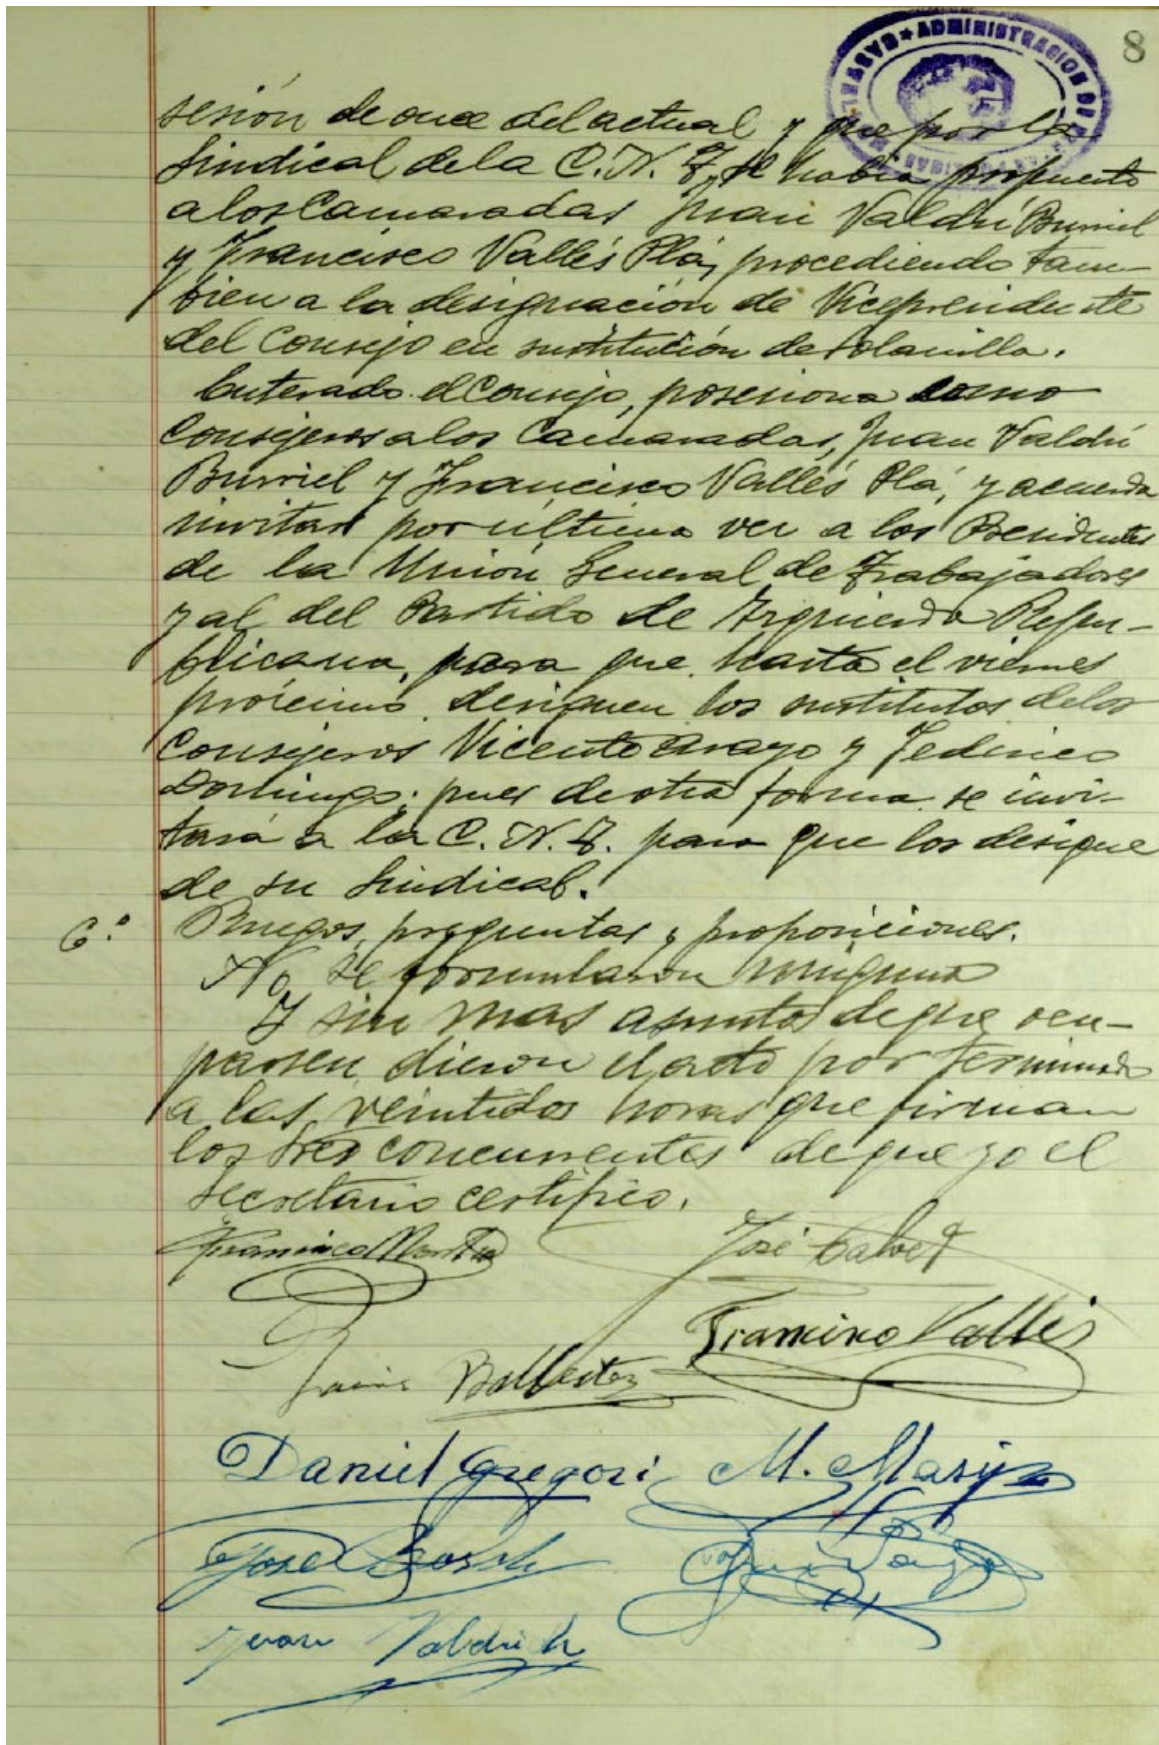 8
ADMINISTRACION DE
sesión de once del actual y que por la
Sindical de la C. N. T. se había propuesto
a los Camaradas Juan Valdrí Burriel
y Francisco Vallés Plá, procediendo tam-
bien a la designación de Vicepresidente
del Consejo en sustitución de Solanilla.
Enterado el Consejo, posesiona como
Consejeros a los Camaradas, Juan Valdrí
Burriel y Francisco Vallés Plá, y acuerda
invitar por última vez a los Presidentes
de la Unión General de Trabajadores
y al del Partido de Izquierda Repu-
blicana, para que hasta el viernes
próximo designen los sustitutos de los
Consejeros Vicente Arayo y Federico
Domingo; pues de otra forma se invi-
tará a la C. N. T. para que los designe
de su Sindical.
6.º Ruegos, preguntas y proposiciones.
No se formularon ninguna
Y sin mas asuntos de que ocu-
parsen dieron el acto por terminado
a las veintidos horas que firman
los tres concurrentes de que yo el
secretario certifico.
Francisco José Calvet
Francisco Vallés
Jaime Ballester
Daniel Gregori M. Masip
José Bosch
Juan Valdrich